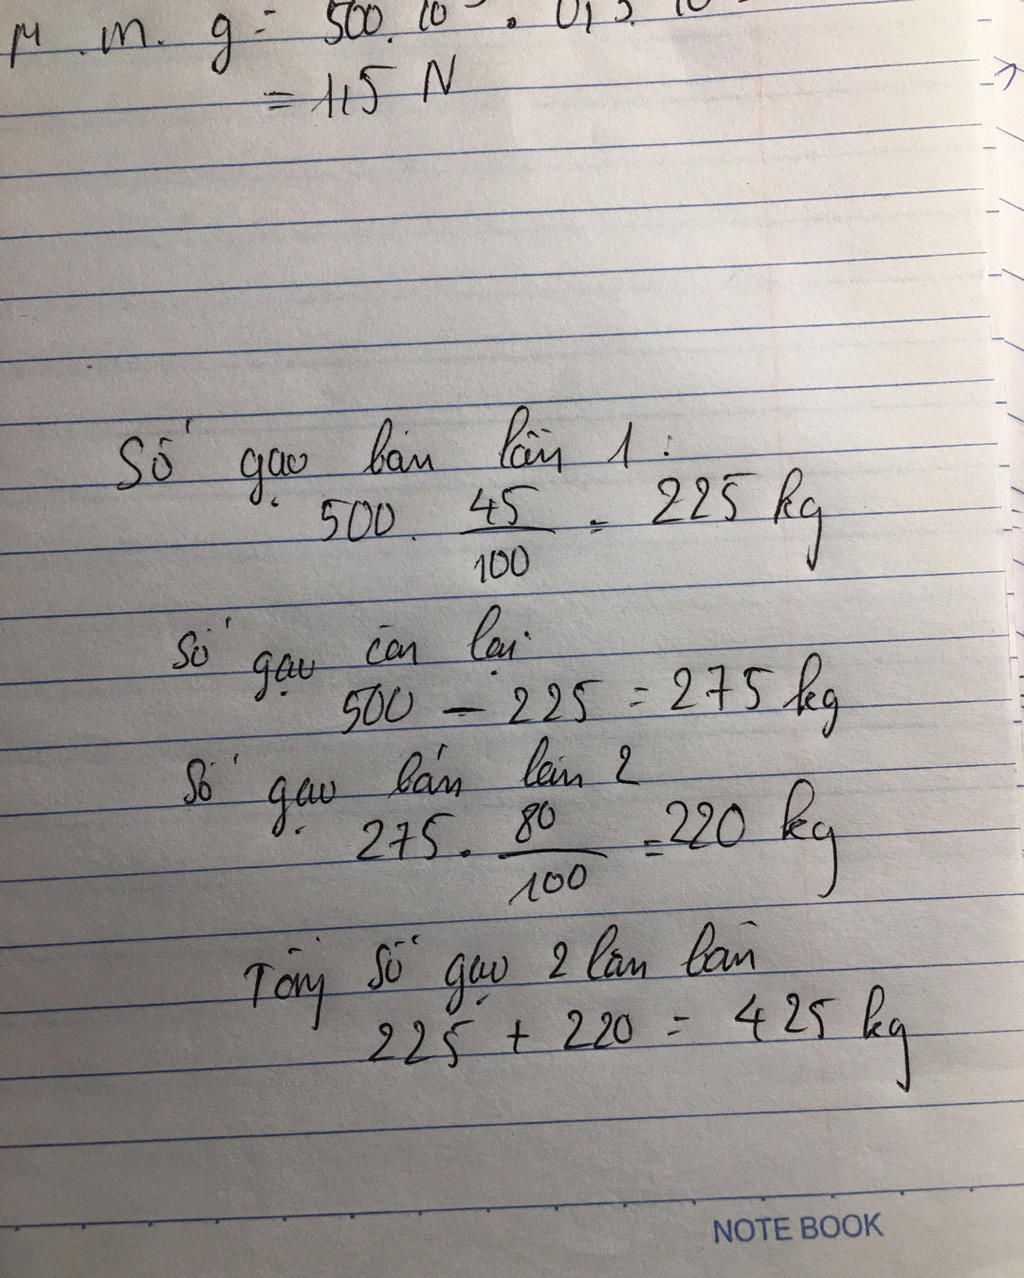 μ . m. g = 500. 10 . 0,3. 10
= 1,5 N
Số gạo bán lần 1 :
500. 45/100 = 225 kg
Số gạo còn lại
500 - 225 = 275 kg
Số gạo bán lần 2
275. 80/100 = 220 kg
Tổng số gạo 2 lần bán
225 + 220 = 425 kg
NOTE BOOK